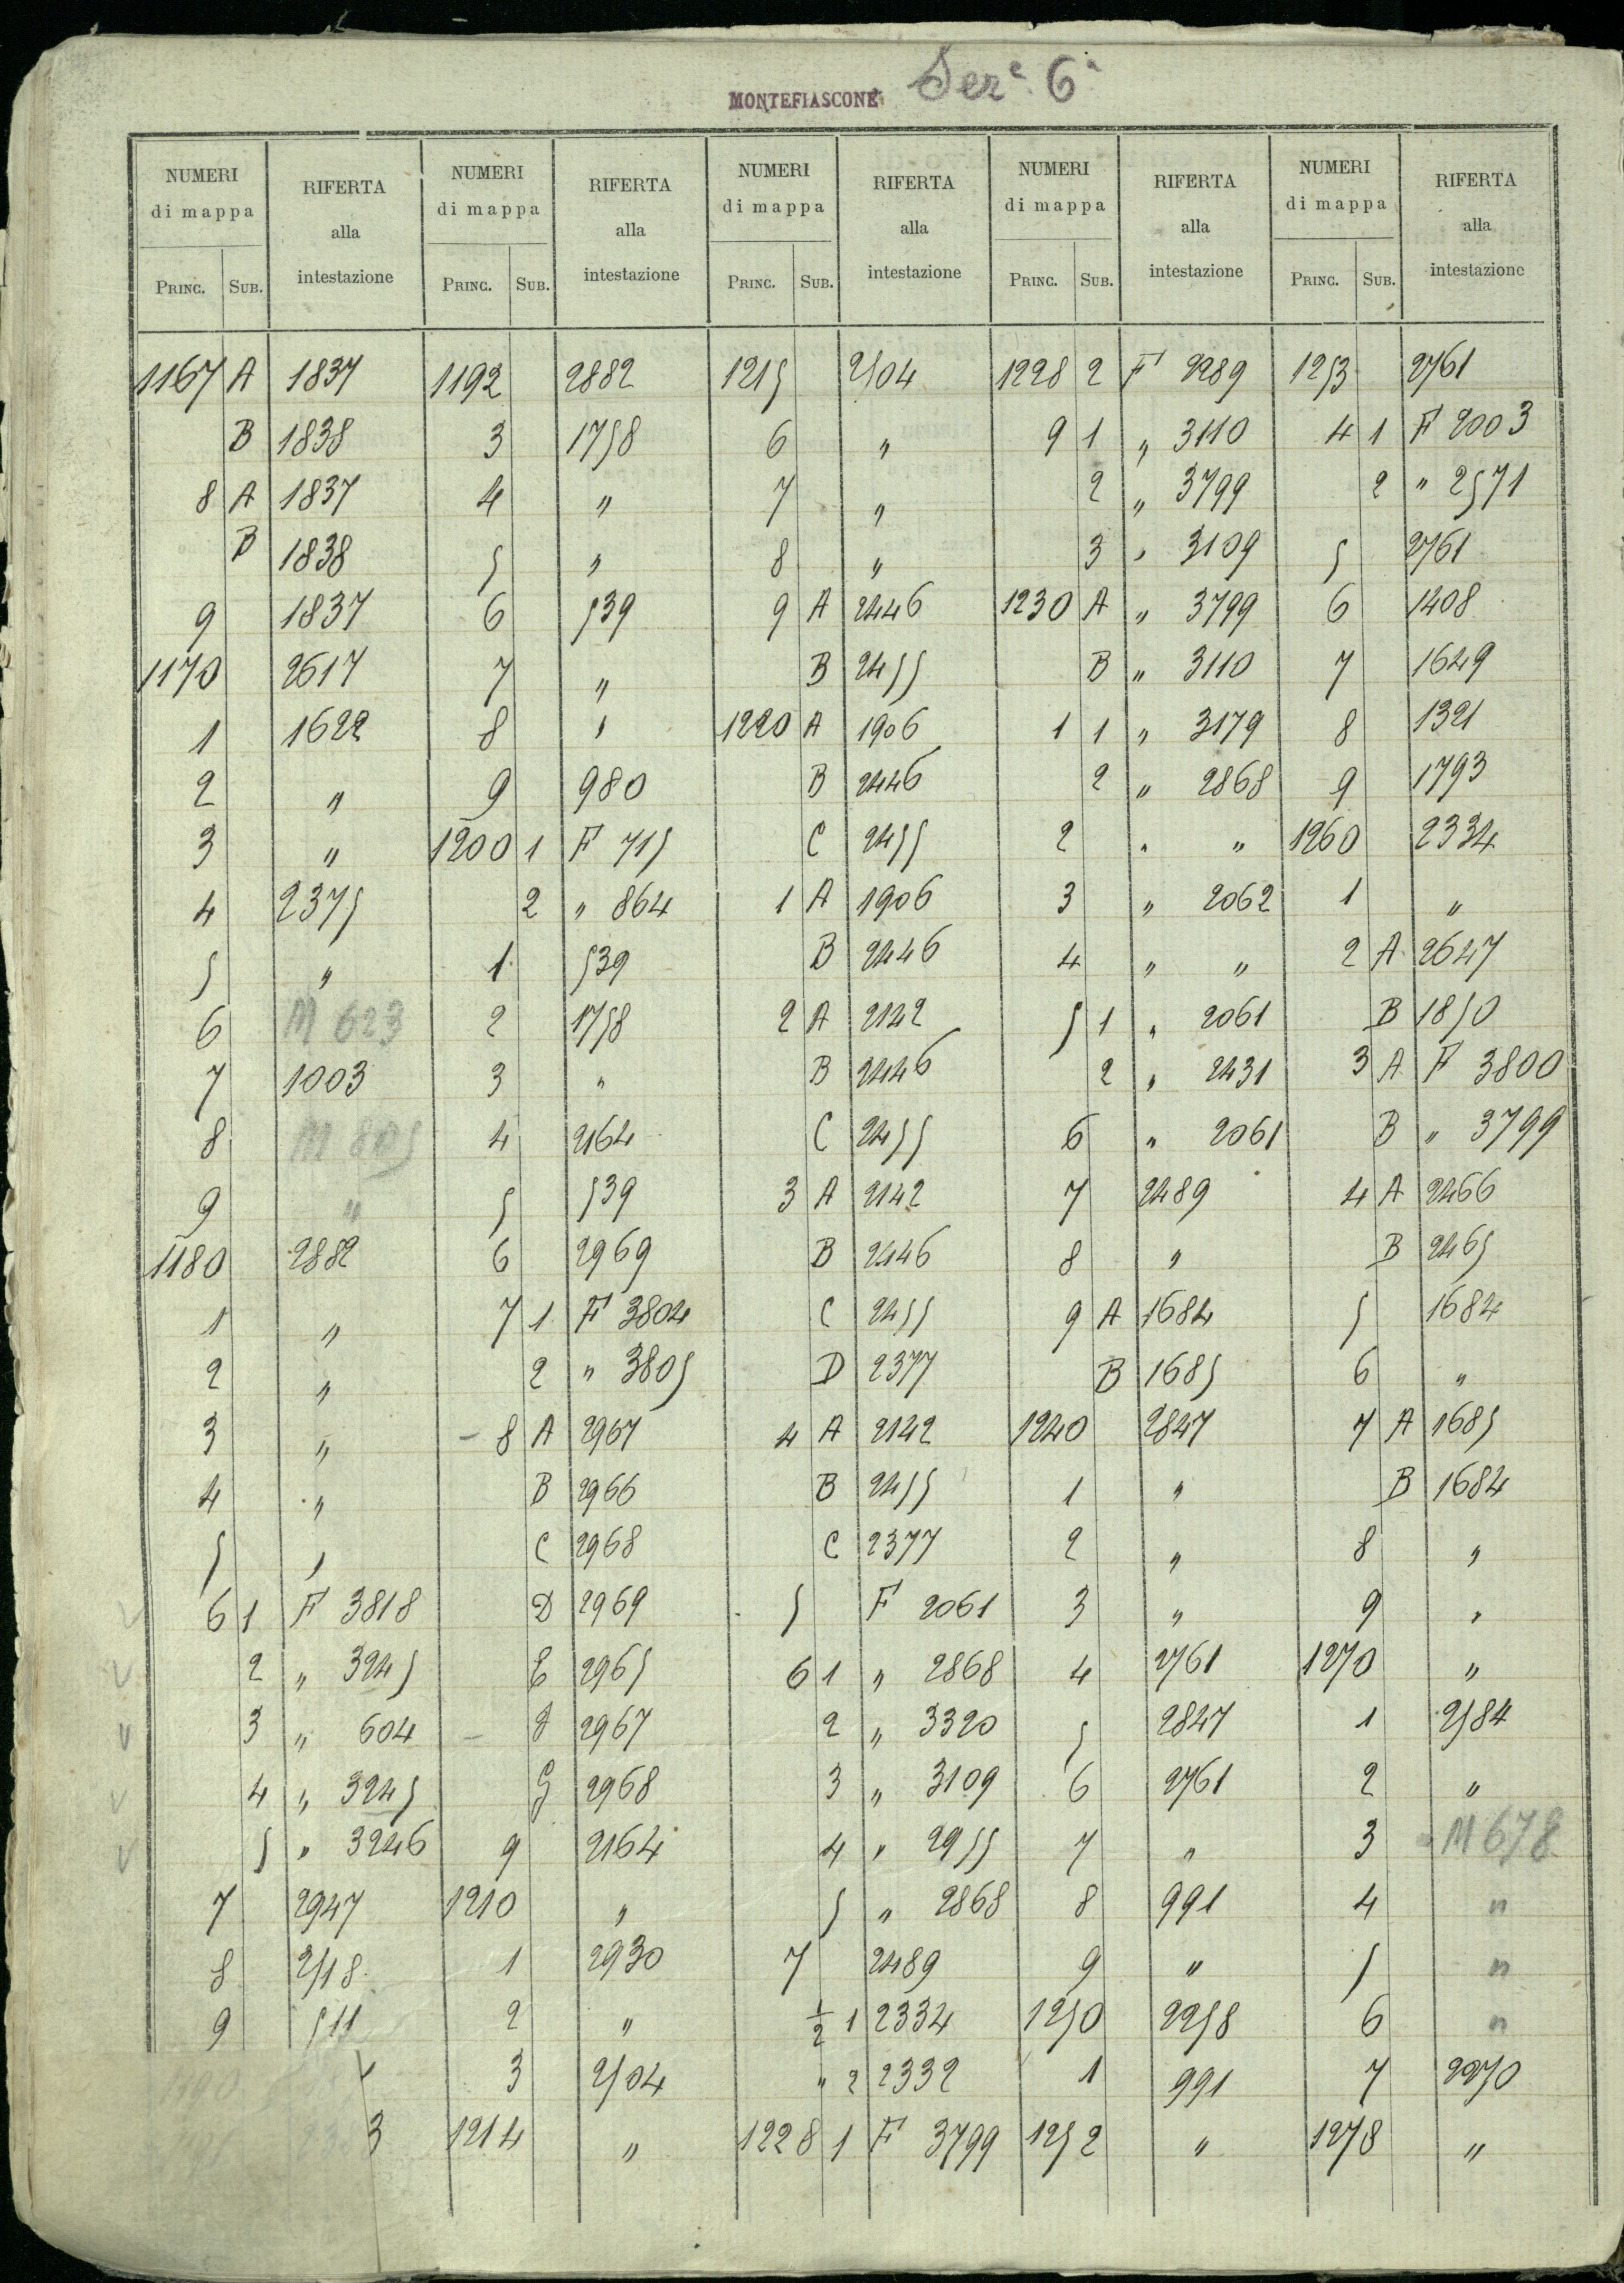 MONTEFIASCONE Ser.e 6a
NUMERI di mappa RIFERTA alla intestazione NUMERI di mappa RIFERTA alla intestazione NUMERI di mappa RIFERTA alla intestazione NUMERI di mappa RIFERTA alla intestazione NUMERI di mappa RIFERTA alla intestazione
PRINC. SUB. PRINC. SUB. PRINC. SUB. PRINC. SUB. PRINC. SUB.
1167 A 1837 1192 2882 1215 2504 1228 2 F 2289 1253 2761
B 1838 3 1758 6 " 9 1 " 3110 4 1 F 2003
8 A 1837 4 " 7 " 2 " 3799 2 " 2571
B 1838 5 " 8 " 3 " 3109 5 2761
9 1837 6 539 9 A 2446 1230 A " 3799 6 1408
1170 2617 7 " B 2455 B " 3110 7 1649
1 1622 8 " 1220 A 1906 1 1 " 3179 8 1321
2 " 9 980 B 2446 2 " 2868 9 1793
3 " 1200 1 F 715 C 2455 2 " " 1260 2334
4 2375 2 " 864 1 A 1906 3 " 2062 1 "
5 " 1 539 B 2446 4 " " 2 A 2647
6 M 623 2 1758 2 A 2142 5 1 " 2061 B 1850
7 1003 3 " B 2446 2 " 2431 3 A F 3800
8 M 805 4 2164 C 2455 6 " 2061 B " 3799
9 " 5 539 3 A 2142 7 2489 4 A 2466
1180 2882 6 2969 B 2446 8 " B 2465
1 " 7 1 F 3804 C 2455 9 A 1684 5 1684
2 " 2 " 3805 D 2377 B 1685 6 "
3 " - 8 A 2967 4 A 2142 1240 2847 7 A 1685
4 " B 2966 B 2455 1 " B 1684
5 " C 2968 C 2377 2 " 8 "
6 1 F 3818 D 2969 5 F 2061 3 " 9 "
2 " 3245 E 2965 6 1 " 2868 4 2761 1270 "
3 " 604 - F 2967 2 " 3320 5 2847 1 2584
4 " 3245 G 2968 3 " 3109 6 2761 2 "
5 " 3246 9 2164 4 " 2955 7 " 3 M 678
7 2947 1210 " 5 " 2868 8 991 4 "
8 2518 1 2930 7 2489 9 " 5 "
9 511 2 " 1/2 1 2334 1250 2258 6 "
3 2504 " 2 2332 1 991 7 2270
3 1214 " 1228 1 F 3799 1252 " 1278 "